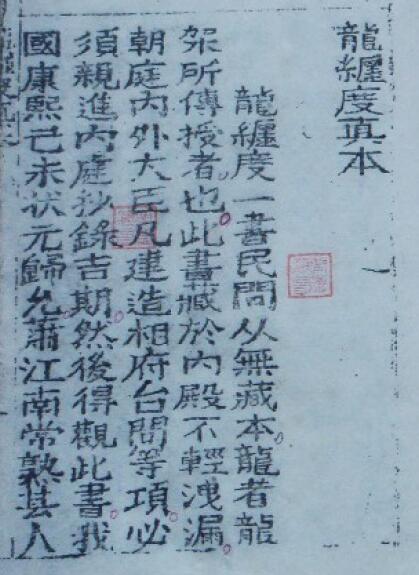 龍纏度真本
龍纏度一書民間从無藏本龍者龍
架所傳授者也此書藏於內殿不輕洩漏
朝庭內外大臣凡建造相府台閣等項必
須親進內庭抄錄吉期然後得觀此書我
國康熙己未状元歸允蕭江南常熟甚人